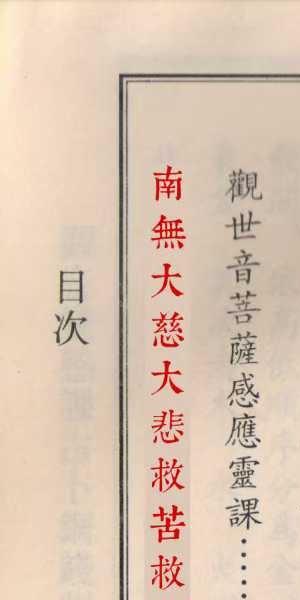 觀世音菩薩感應靈課……
南無大慈大悲救苦救
目次